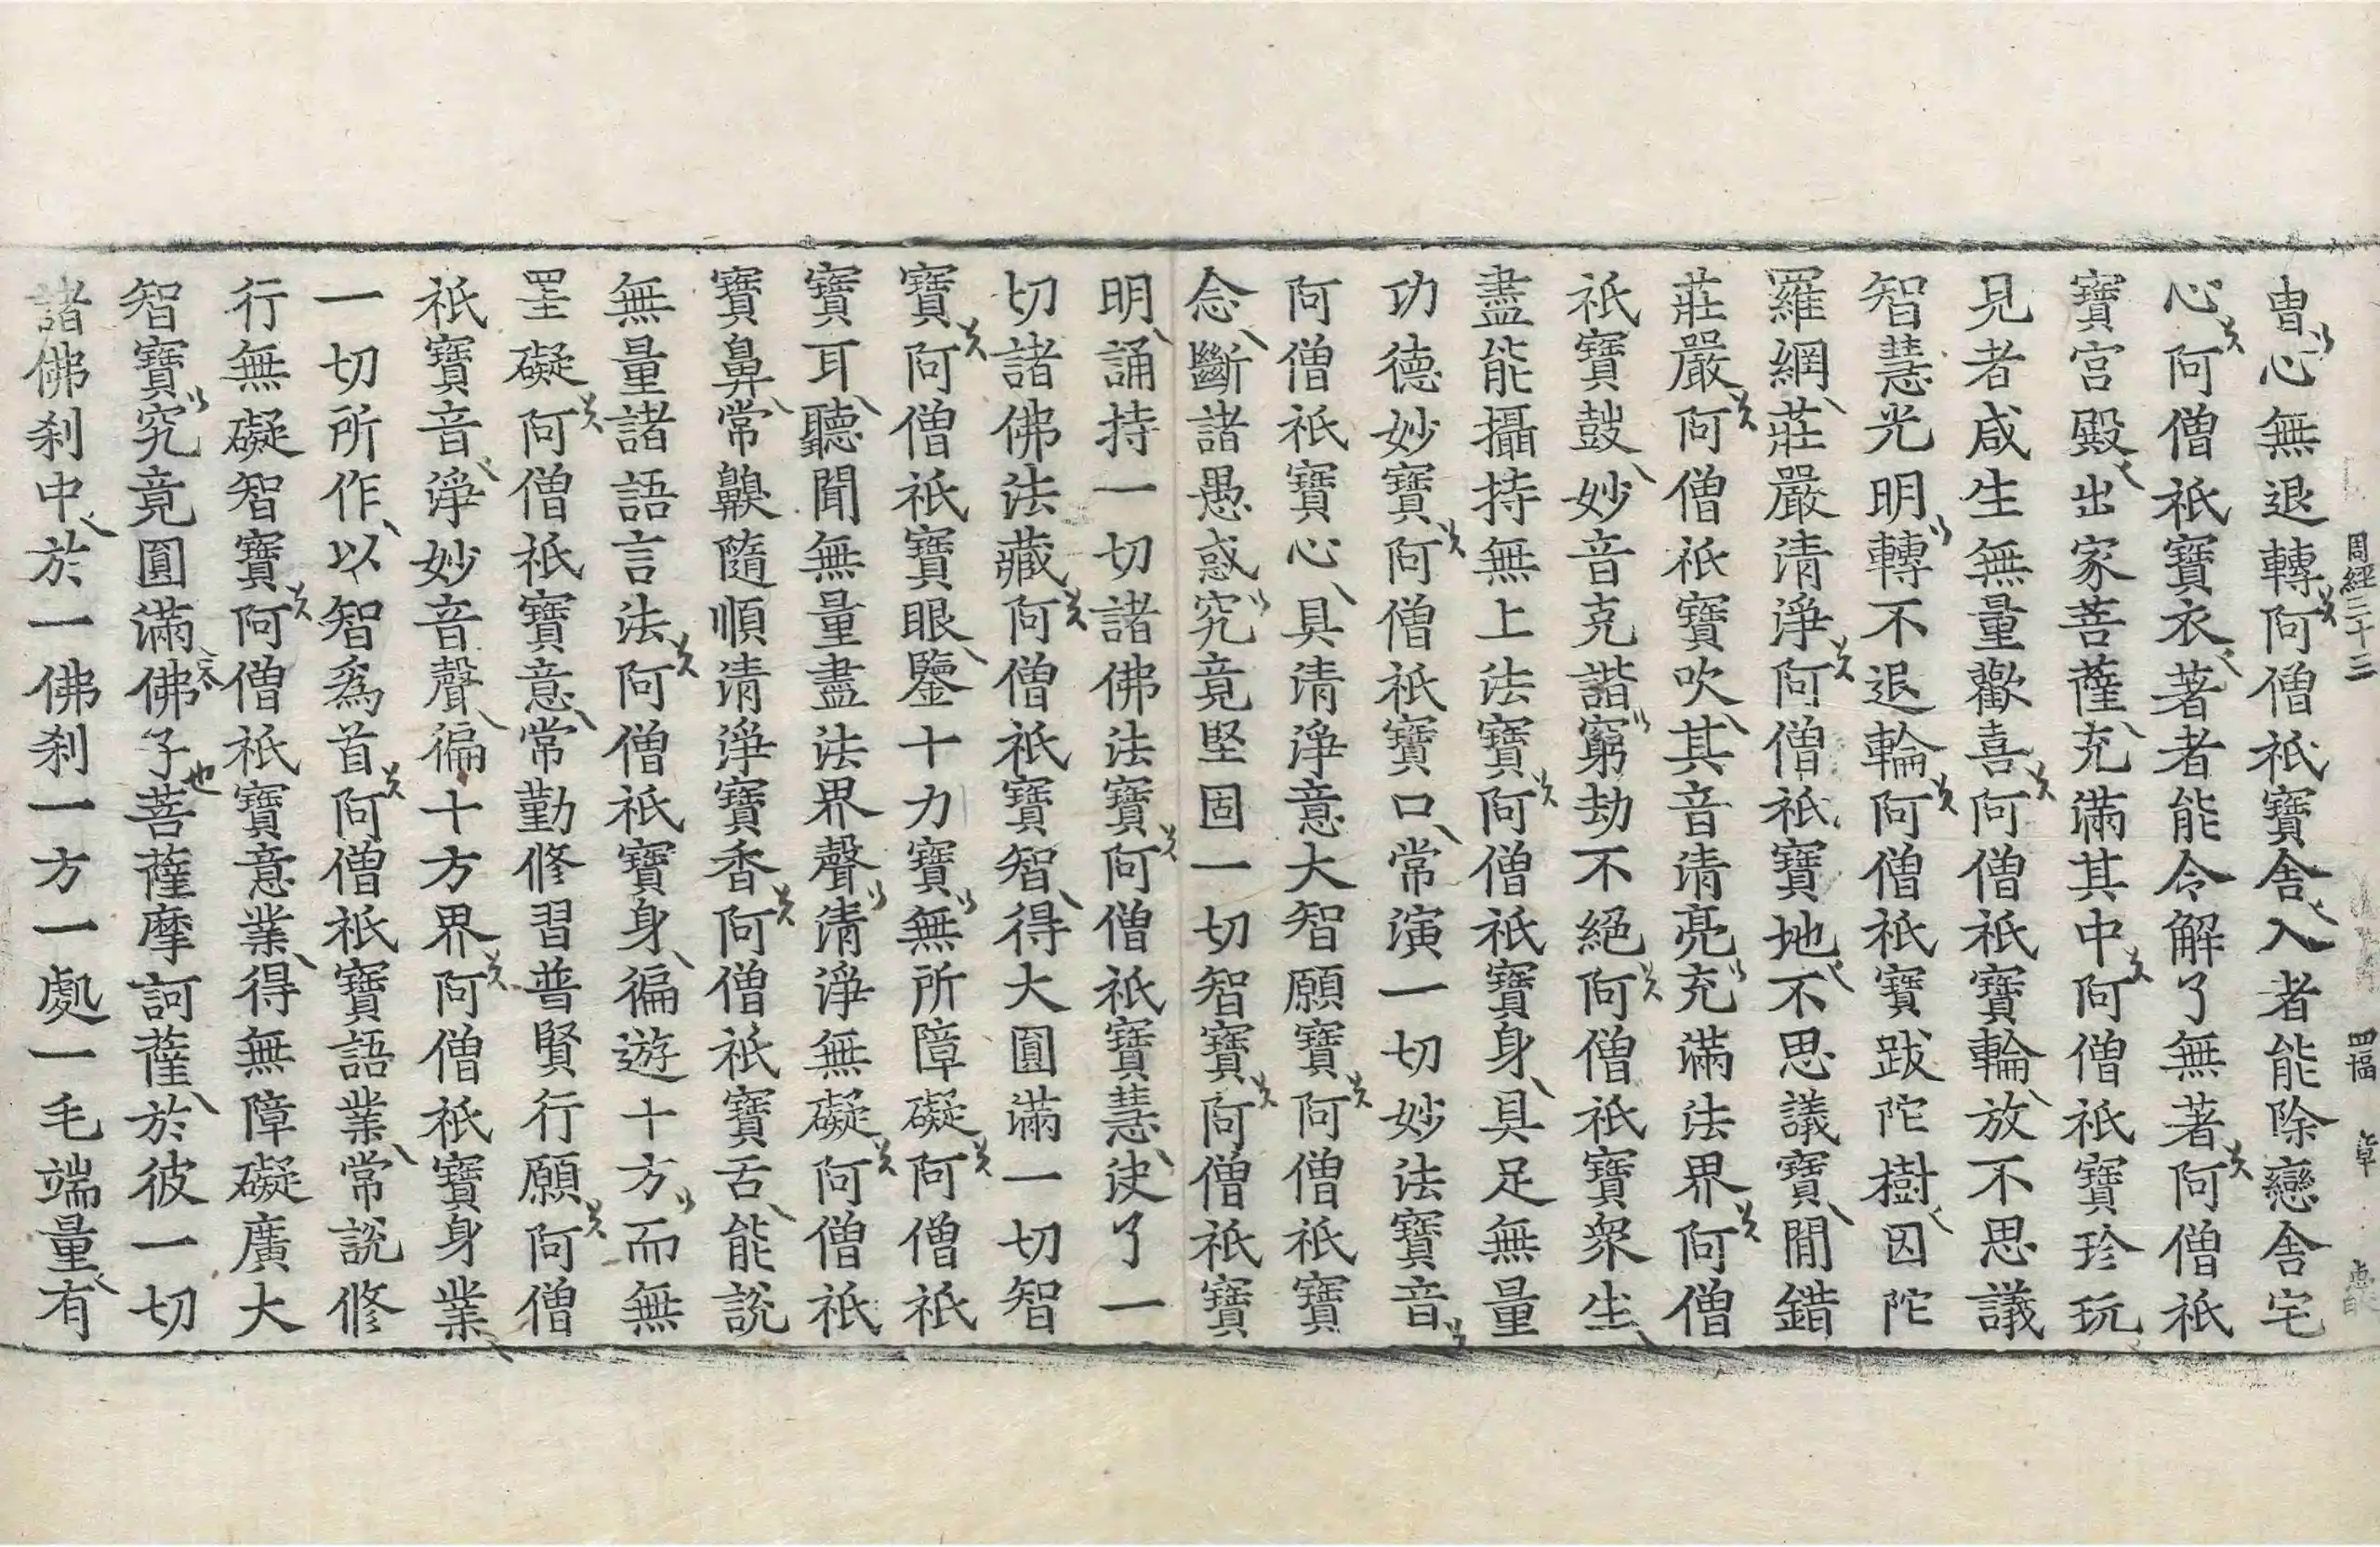 周經三十三 四幅 章
冑心無退轉阿僧祇寶舍入者能除戀舍宅
心阿僧祇寶衣著者能令解了無著阿僧祇
寶宮殿出家菩薩充滿其中阿僧祇寶珍玩
見者咸生無量歡喜阿僧祇寶輪放不思議
智慧光明轉不退輪阿僧祇寶跋陀樹因陀
羅網莊嚴清淨阿僧祇寶地不思議寶閒錯
莊嚴阿僧祇寶吹其音清亮充滿法界阿僧
祇寶鼓妙音克諧窮劫不絕阿僧祇寶衆生
盡能攝持無上法寶阿僧祇寶身具足無量
功德妙寶阿僧祇寶口常演一切妙法寶音
阿僧祇寶心具清淨意大智願寶阿僧祇寶
念斷諸愚惑究竟堅固一切智寶阿僧祇寶
明誦持一切諸佛法寶阿僧祇寶慧決了一
切諸佛法藏阿僧祇寶智得大圓滿一切智
寶阿僧祇寶眼鑒十力寶無所障礙阿僧祇
寶耳聽聞無量盡法界聲清淨無礙阿僧祇
寶鼻常齅隨順清淨寶香阿僧祇寶舌能說
無量諸語言法阿僧祇寶身徧遊十方而無
罣礙阿僧祇寶意常勤修習普賢行願阿僧
祇寶音淨妙音聲徧十方界阿僧祇寶身業
一切所作以智爲首阿僧祇寶語業常說修
行無礙智寶阿僧祇寶意業得無障礙廣大
智寶究竟圓滿佛子菩薩摩訶薩於彼一切
諸佛刹中於一佛刹一方一處一毛端量有